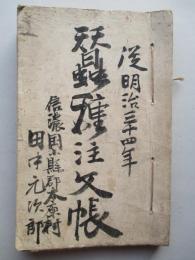 従明治三十四年
蚕種注文帳
信濃国小縣郡本原村
田中元次郎